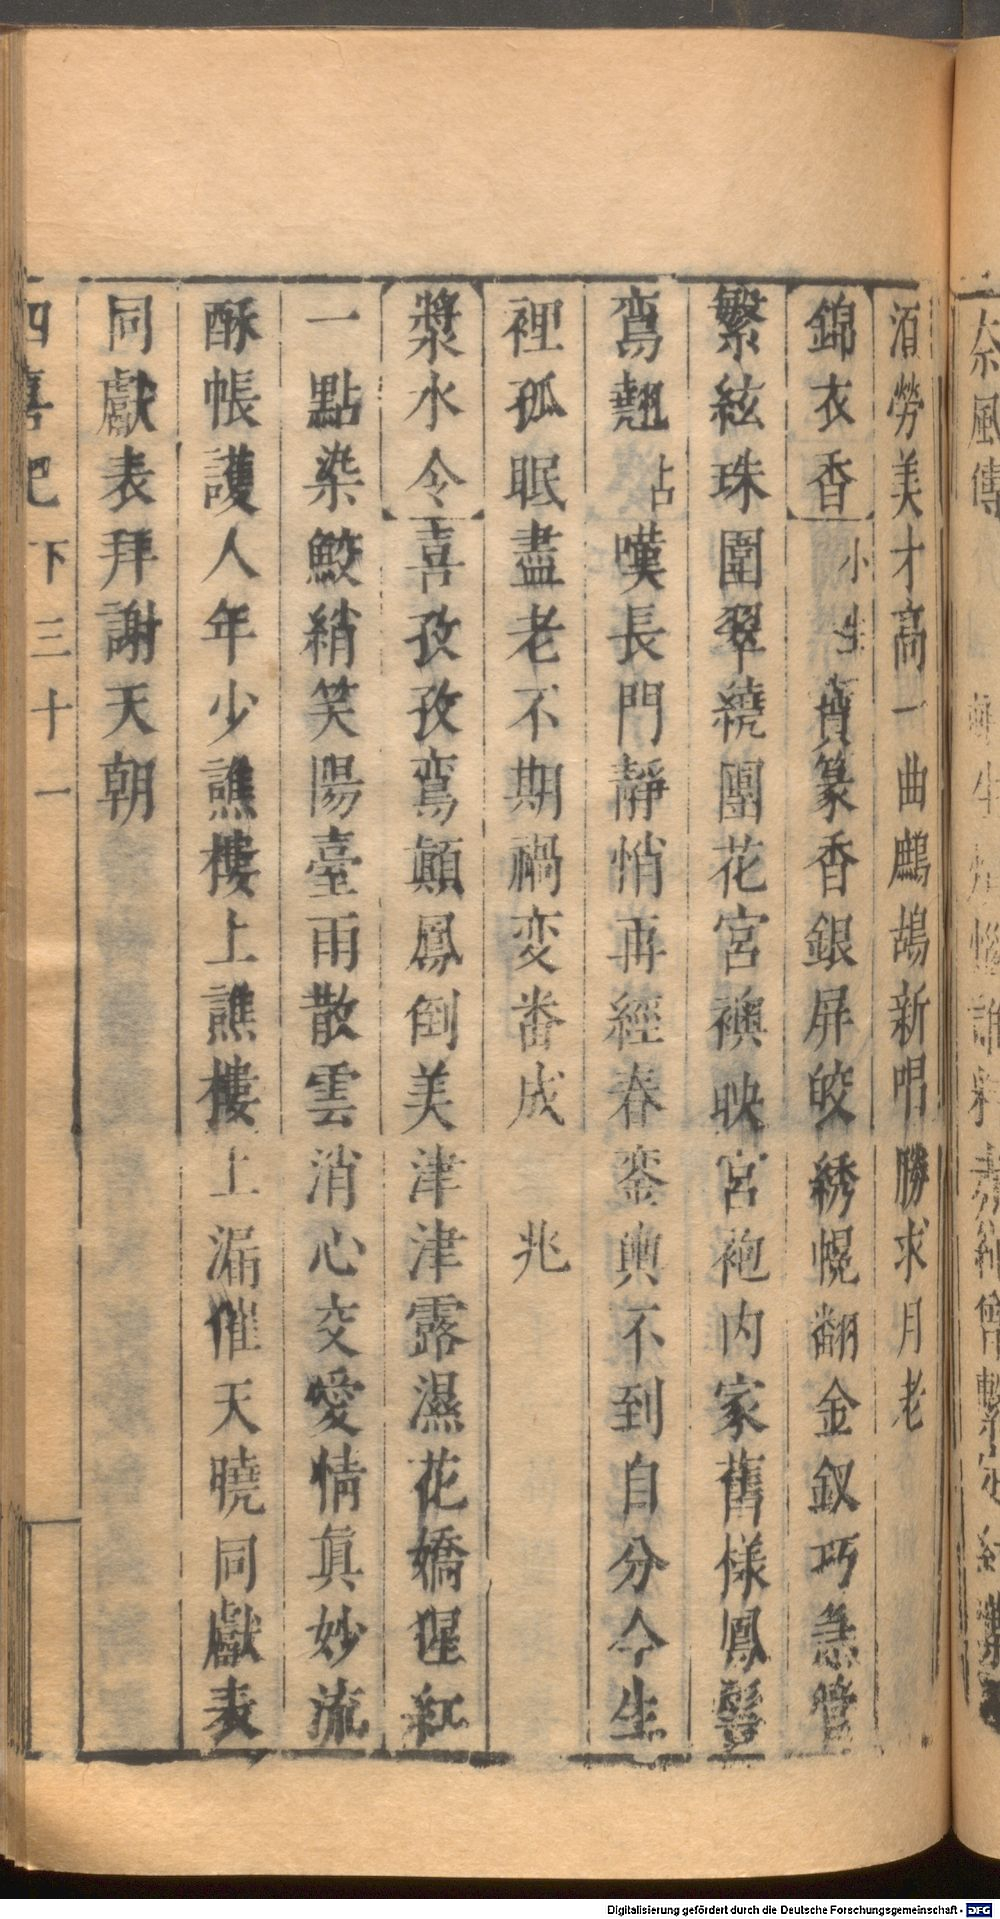 湏勞美才高一曲鷓鴣新唱勝求月老
錦衣香 小生 寳篆香銀屏皎綉幌翻金釵巧急管
繁絃珠圍翠繞團花宮襖映宮袍内家舊様鳳髻
鸞翹 占 嘆長門靜悄再經春鑾輿不到自分今生
裡孤眠盡老不期禍変畨成 兆
漿水令 喜孜孜鸞顛鳳倒美津津露濕花嬌猩紅
一點染鮫綃笑陽臺雨散雲消心交愛情真妙流
酥帳護人年少譙樓上譙樓上漏催天曉同獻表
同獻表拜謝天朝
四喜記 下 三十一
Digitalisierung gefördert durch die Deutsche Forschungsgemeinschaft - DFG